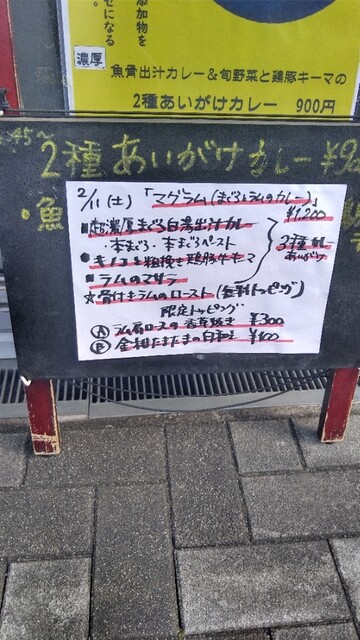 添加物を
せになる
濃厚
魚骨出汁カレー＆旬野菜と鶏豚キーマの
2種あいがけカレー 900円
45～
2種あいがけカレー ¥9
・魚
2/11(土) 「マグラム(まぐろ&ラムのカレー)」
¥1,200
■超濃厚まぐろ白湯出汁カレー
・本まぐろ・本まぐろペースト
●キノコと粗挽き鶏豚キーマ
■ラムのマサラ
3種カレー
あいがけ
☆骨付きラムのロースト(無料トッピング)
限定トッピング
Ⓐ ラム肩ロースの香草焼き ¥300
Ⓑ 金柑たまたまの白和え ¥100